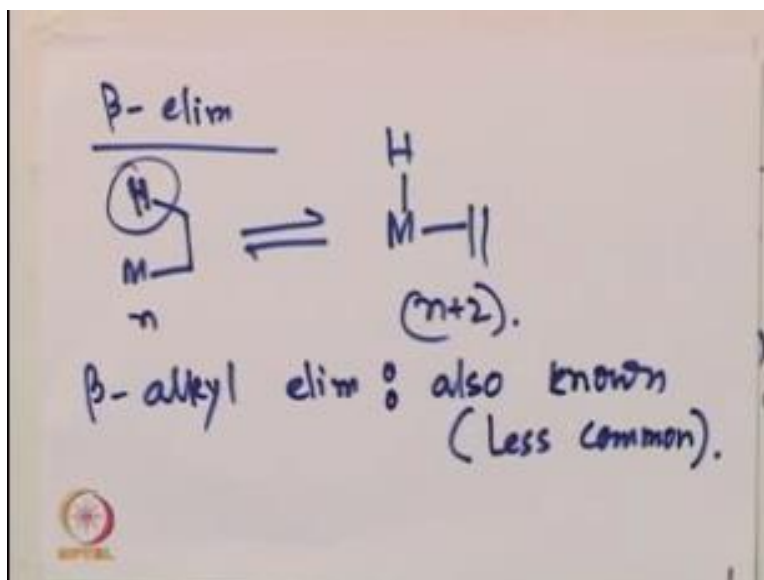 β- elim
H
H
M
M
n
(n+2).
β-alkyl elim : also known
(less common).
NPTEL